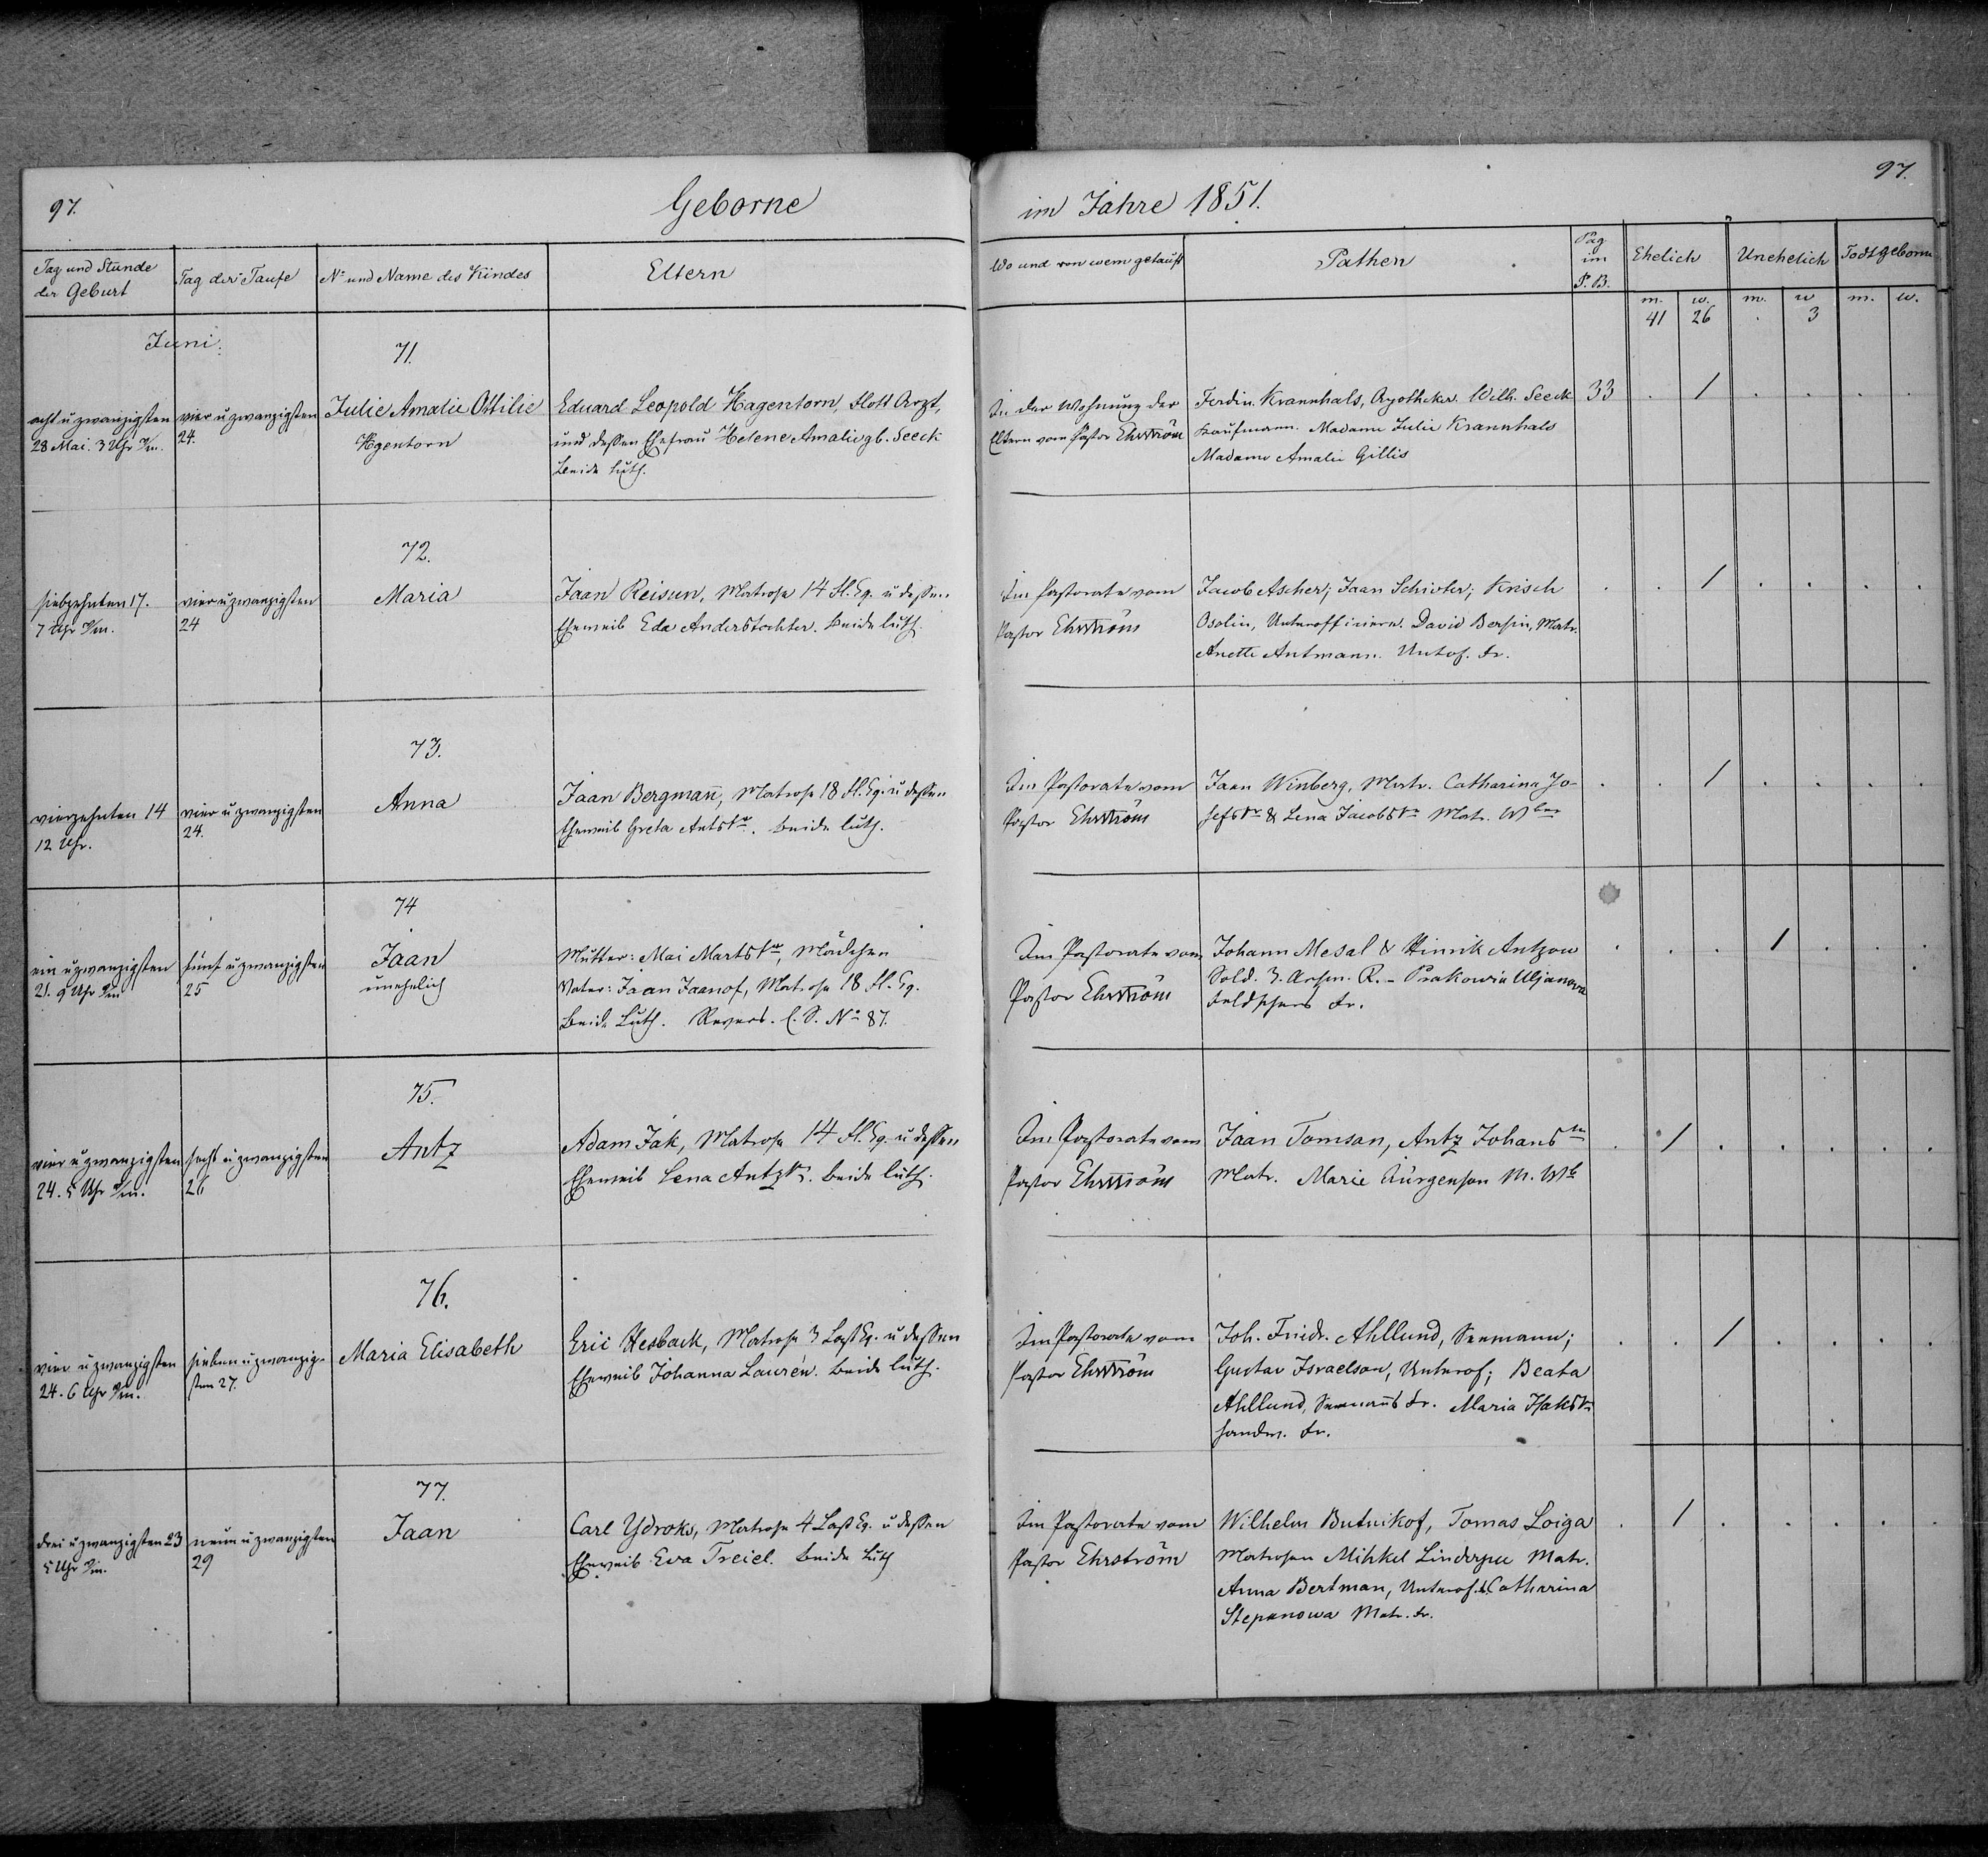 97.
Geborne
im Jahre 1851.
97.
Tag und Stunde
der Geburt
Tag der Taufe
No und Name des Kindes
Eltern
Wo und von wem getauft
Pathen
Pag
im
P. B.
Ehelich
Unehelich
Todtgeborne
m.
w.
m.
w
m.
w.
41
26
.
3
Juni.
71.
acht u zwanzigsten
28 Mai. 3 Uhr
vier u zwanzigsten
24.
Julie Amalie Ottilie
Hgentorn
Eduard Leopold Hagentorn, Flott Arzt,
und dessen Ehefrau Helene Amalie gb. Seeck
beide luth.
In der Wohnung der
Eltern vom Pastor Ehrström
Ferdin. Krannhals, Apotheker. Wilh. Seeck
Kaufmann. Madame Julie Krannhals
Madame Amalie Gillis
33
72.
siebzehnten 17.
7 Uhr
vier u zwanzigsten
24
Maria
Jaan Reisun, Matrose 14 Fl. Eq. u dessen
Eheweib Eda Anderstochter. beide luth.
Im Pastorate vom
Pastor Ehrström
Jacob Ascher; Jaan Schirter; Krisch
Osolin, Unteroffiziere. David Bersin, Matr.
Anette Antmann. Untof. Fr.
73.
vierzehnten 14
12 Uhr.
vier u zwanzigsten
24.
Anna
Jaan Bergman̄, Matrose 18 Fl. Eq. u dessen
Eheweib Greta Antstr. beide luth.
Im Pastorate vom
Pastor Ehrström
Jaan Winberg, Matr. Catharina Jo-
sefstr & Lena Jacobstr Matr. Wber
74
ein u zwanzigsten
21. 9 Uhr
fünf u zwanzigsten
25
Jaan
unehelich
Mutter: Mai Martstr, Mädchen
Vater: Jaan Jaanof, Matrose 18 Fl. Eq.
Beide Luth. Revers. C. S. No 87.
Im Pastorate vom
Pastor Ehrström
Johann Mesal & Hinrik Antzow
Sold. 3. Arsen. R. - Prakowia Uljanowa
Feldschers Fr.
75.
vier u zwanzigsten
24. 5 Uhr
sechs u zwanzigsten
26
Antz
Adam Jak, Matrose 14 Fl. Eq. u dessen
Eheweib Lena Antztr. beide luth.
Im Pastorate vom
Pastor Ehrström
Jaan Tomsan, Antz Johansn
Matr. Marie Jürgenson M. Wb
76.
vier u zwanzigsten
24. 6 Uhr
sieben u zwanzig-
sten 27.
Maria Elisabeth
Eric Hesback, Matrose 3 Last Eq. u dessen
Eheweib Johanna Laurén. beide luth.
Im Pastorate vom
Pastor Ehrström
Joh. Friedr. Ahllund, Seemann;
Gustav Israelson, Unterof; Beata
Ahllund, Seemans Fr. Maria Isakstr
Fr.
77.
drei u zwanzigsten 23
5 Uhr
neun u zwanzigsten
29
Jaan
Carl Ydroks, Matrose 4 Last Eq. u dessen
Eheweib Eva Treiel. beide Luth
Im Pastorate vom
Pastor Ehrström
Wilhelm Butnikof, Tomas Loiga
Matrosen Mihkel Linderpu Matr.
Anna Bertman, Unterof. & Catharina
Stepanowa Matr. Fr.